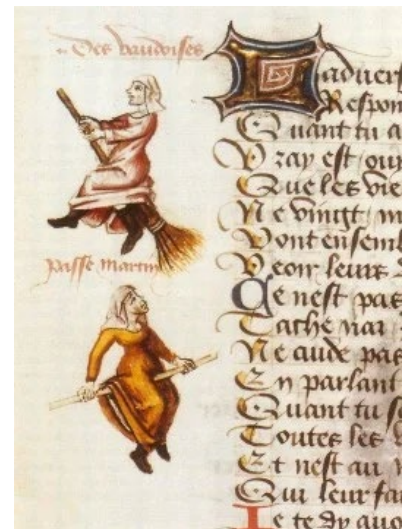 Des vaudoises
passe martin
Ladvers
Respon
Quant tu a
Vray est
Que les vie
Ne vingt
Vont ensemb
Veoir leurs
Ce nest pas
Ne cuide pas
En parlant
Quant tu
Toutes les
Et nest au
Qui leur fa
Je te dy